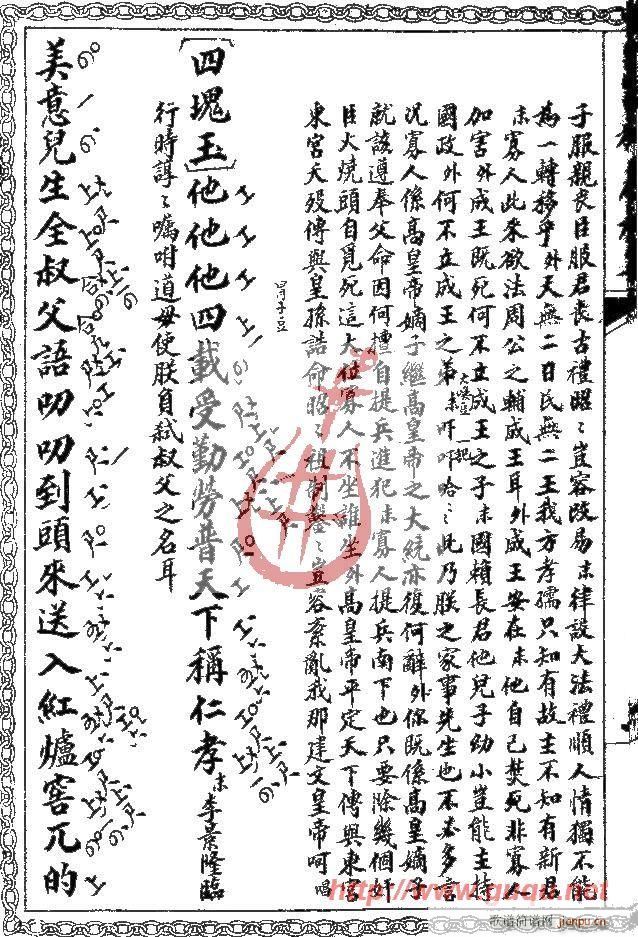 子服親喪臣服君喪古禮昭〻豈容改易末律設大法禮順人情獨不能
為一轉移乎外天無二日民無二王我方孝孺只知有故主不知有新君
末寡人此來欲法周公之輔成王耳外成王安在末他自己焚死非寡人
加害外成王既死何不立成王之子末國賴長君他兒子幼小豈能主持
國政外何不立成王之弟末吓吓哈〻此乃朕之家事先生也不必多言
大笑
況寡人係高皇帝嫡子繼高皇帝之大統亦復何辭外你既係高皇嫡子
就該遵奉父命因何擅自提兵進犯末寡人提兵南下也只要除幾個奸
臣火燒頭自覓死這大位寡人不坐誰坐外高皇帝平定天下傳與東宮
東宮夭歿傳與皇孫誥命昭〻祖制豈容紊亂我那建文皇帝呵唱
四塊玉他他他四載受勤勞普天下稱仁孝末李景隆臨
行時諄〻囑咐道毋使朕負弒叔父之名耳
美意兒生全叔父語叨叨到頭來送入紅爐窖兀的
www.guqu.net
歌譜簡譜網
jianpu.cn